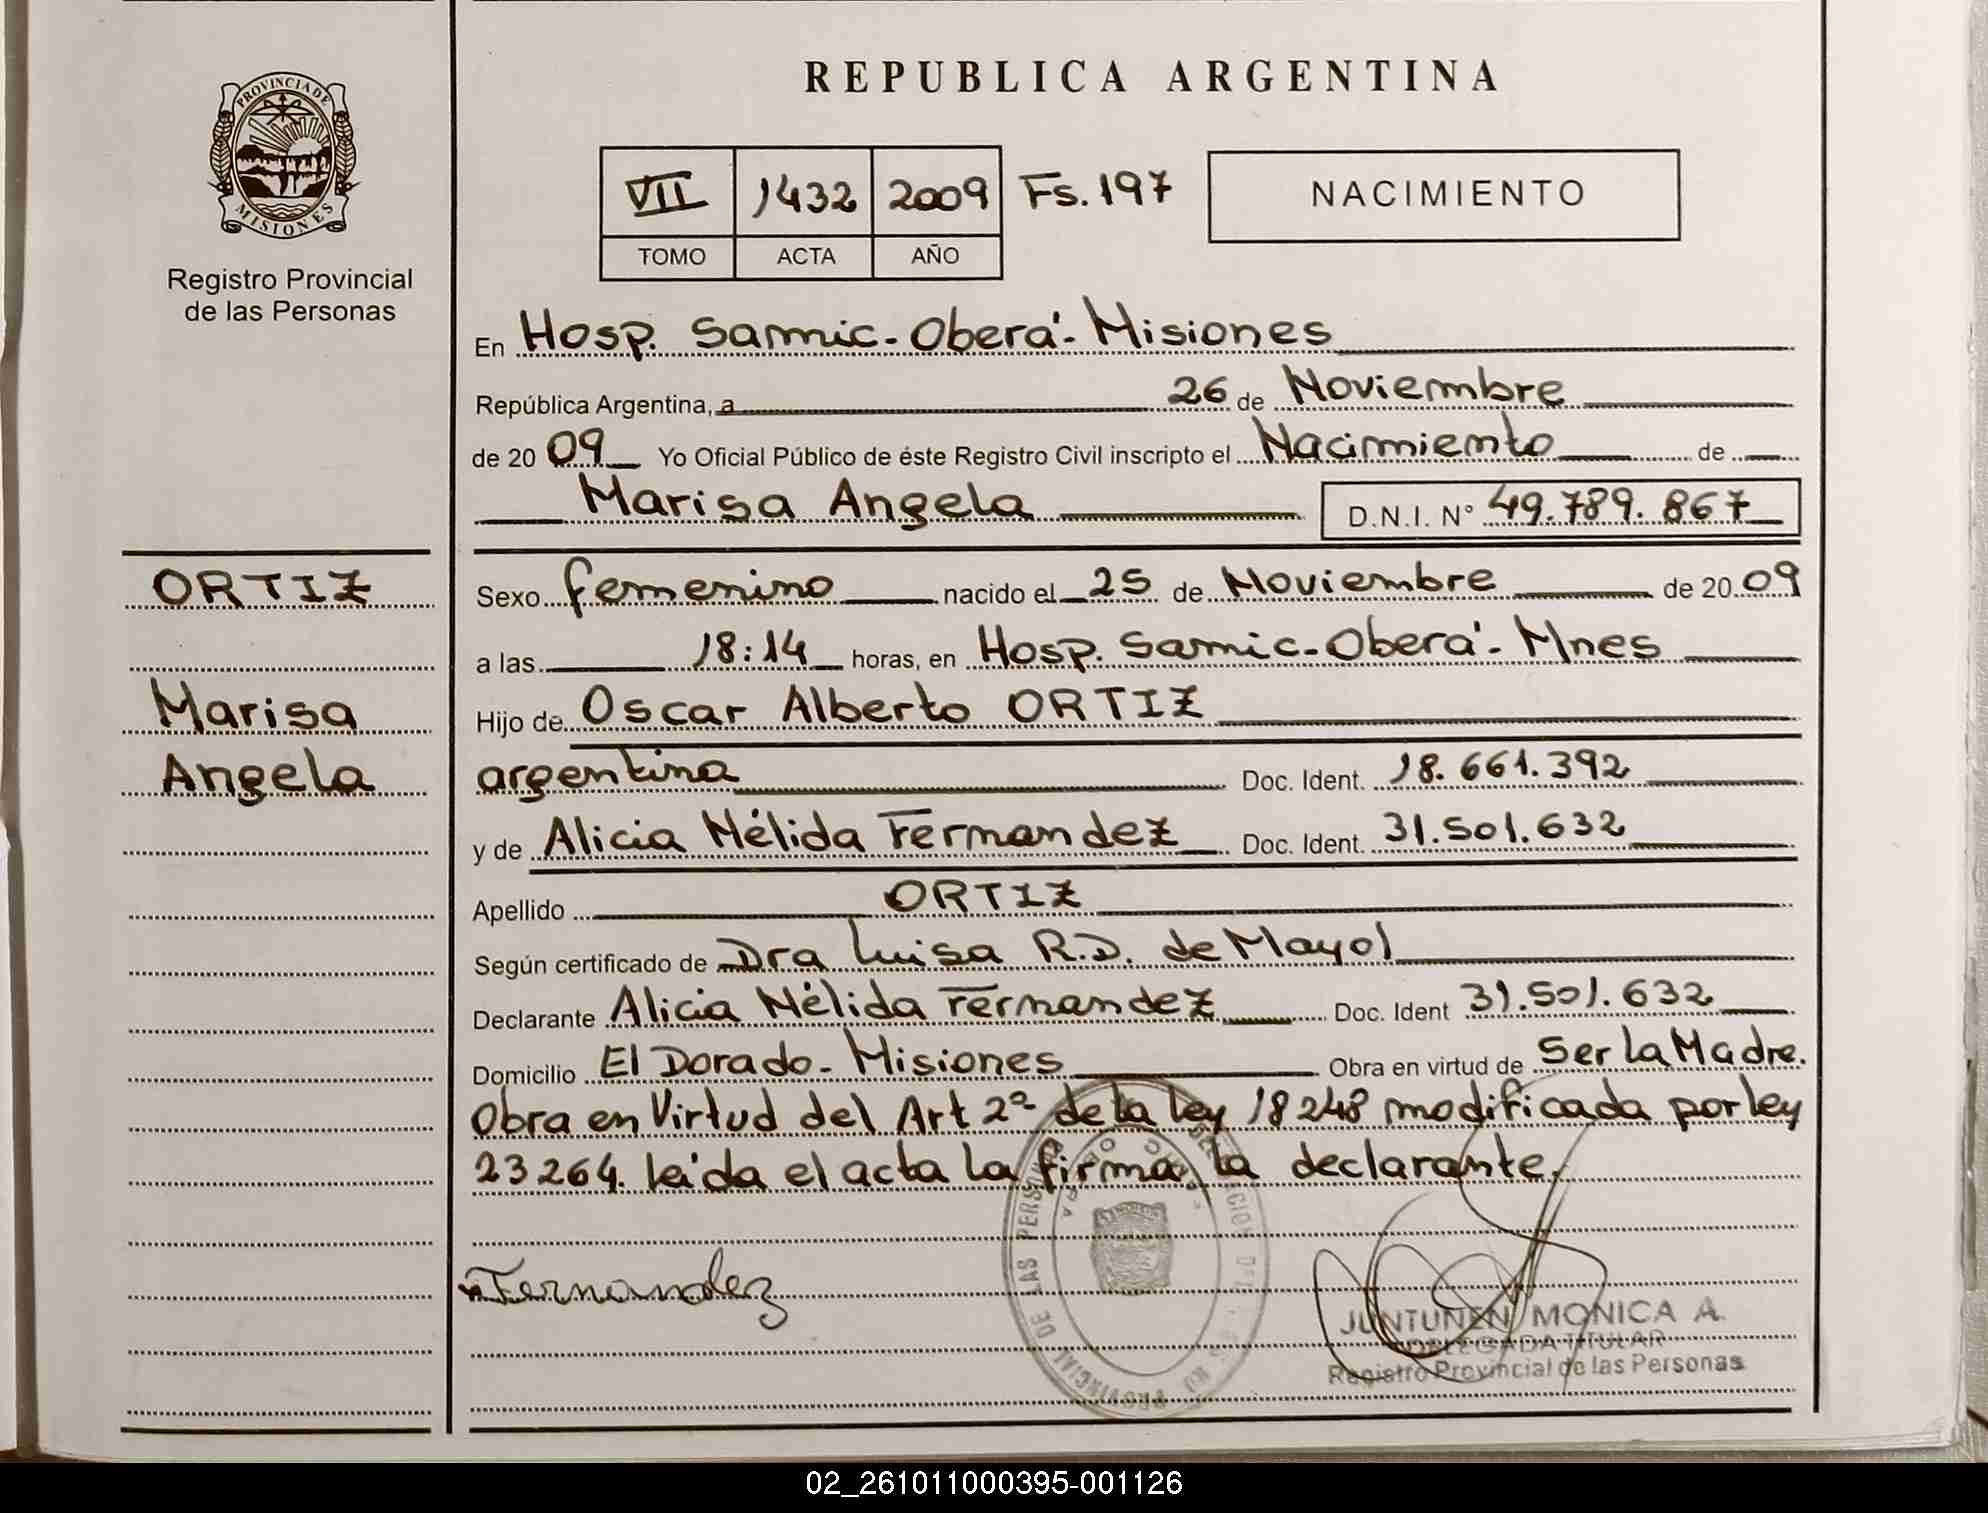 REPUBLICA ARGENTINA
PROVINCIA DE
MISIONES
Registro Provincial
de las Personas
VII 1432 2009 Fs. 197
TOMO ACTA AÑO
NACIMIENTO
En Hosp. Samic-Oberá-Misiones
República Argentina, a 26 de Noviembre
de 2009 Yo Oficial Público de éste Registro Civil inscripto el Nacimiento de
Marisa Angela D.N.I. N° 49.789.867
ORTIZ
Marisa
Angela
Sexo femenino nacido el 25 de Noviembre de 2009
a las 18:14 horas, en Hosp. Samic-Oberá-Mnes
Hijo de Oscar Alberto ORTIZ
argentina Doc. Ident. 18.661.392
y de Alicia Nélida Fernandez Doc. Ident. 31.501.632
Apellido ORTIZ
Según certificado de Dra Luisa R.D. de Mayol
Declarante Alicia Nélida Fernandez Doc. Ident 31.501.632
Domicilio El Dorado-Misiones Obra en virtud de Ser la Madre.
Obra en Virtud del Art 2º de la ley 18248 modificada por ley
23264. leída el acta la firma, la declarante.
Fernandez
JUNTUNEN MONICA A.
DELEGADA TITULAR
Registro Provincial de las Personas
02_261011000395-001126